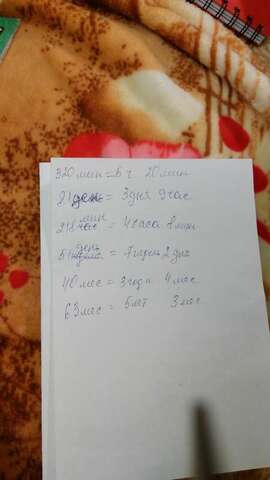 320 мин = 6 ч 20 мин
81 = 3 дня 9 час
мин
248 час = 4 часа 8 мин
день
51 = 7 недель 2 дня
40 мес = 3 года 4 мес
63 мес = 5 лет 3 мес